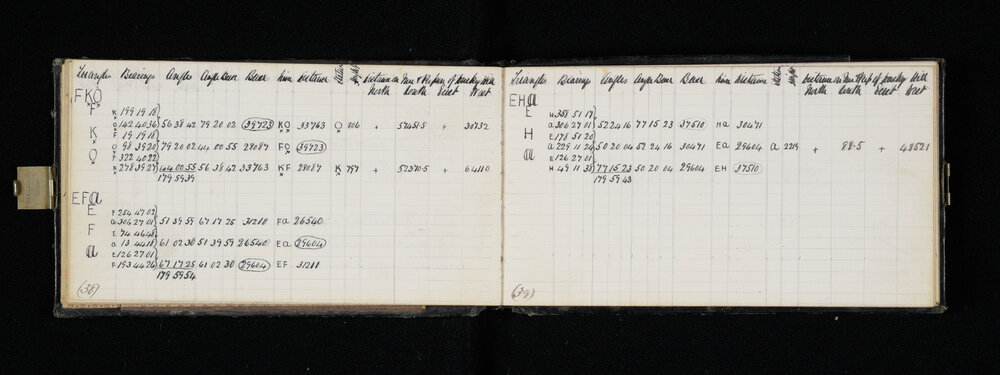 Triangles Bearings Angles Angle Base Line Distance Station
North South East West
FKO
F
K 199 19 18
O 142 40 36 56 38 42 79 20 02 39723 KO 33763 O 106 + 57451.5 + 30732
K F 19 19 18
O 98 39 20 79 20 02 44 00 55 28087 FO 39723
O F 322 40 22
K 278 39 27 44 00 55 56 38 42 33763 KF 28087 K 757 + 52370.5 + 64110
179 59 39
EFa
E F 254 47 02
a 306 27 01 51 39 59 67 17 25 31210 Fa 26540
F E 74 46 48
a 13 44 18 61 02 30 51 39 59 26540 Ea 29604
a E 126 27 01
F 193 44 26 67 17 25 61 02 30 29604 EF 31211
179 59 54
(38)
Triangles Bearing Angles Angle Base Base Line Distance
North South East West
EHa
E H 358 51 17
a 306 27 01 52 24 16 77 15 23 37510 Ha 30471
H E 178 51 20
a 229 11 24 50 20 04 52 24 16 30471 Ea 29604 a 2219 + 88.5 + 48521
a E 126 27 01
H 49 11 38 77 15 23 50 20 04 29604 EH 37510
179 59 43
(39)